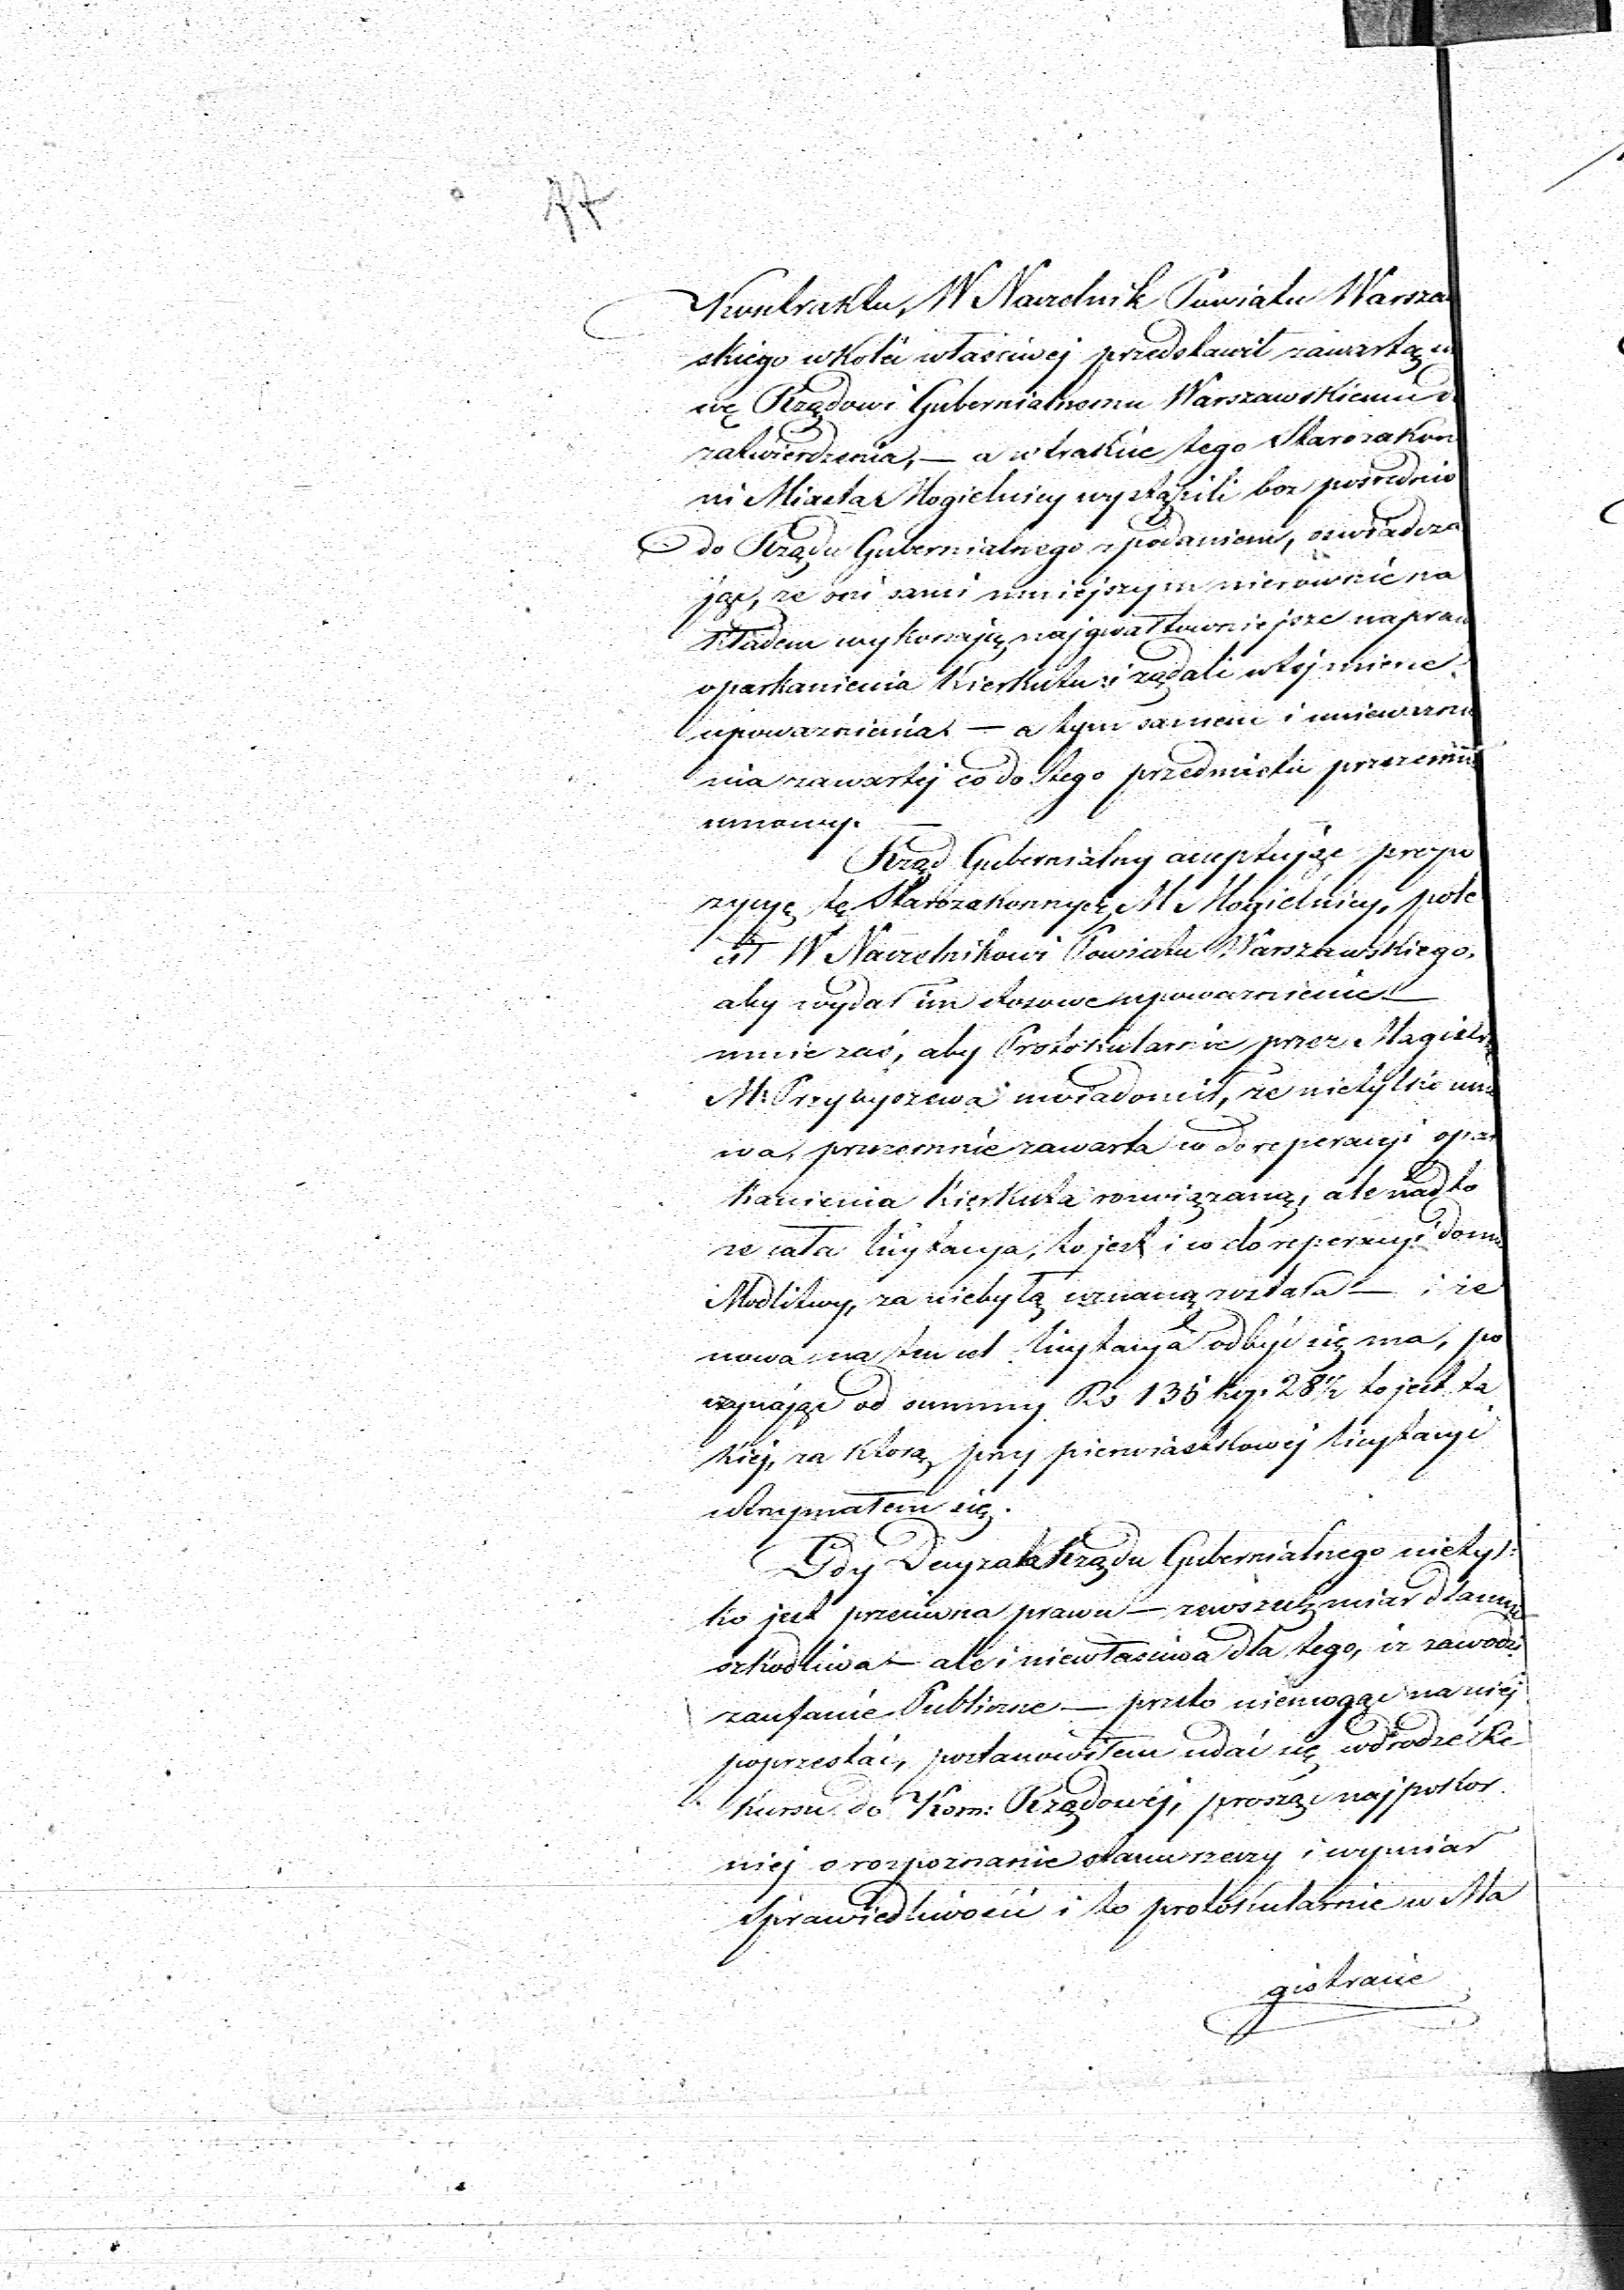 Kontraktu, W Naczelnik Powiatu Warsza
skiego w kolei właściwej przedstawił zawartą u
wę Rządowi Gubernialnemu Warszawskiemu d
zatwierdzenia, — a w trakcie tego Starozakon
ni Miasta Mogielnicy wystąpili bez pośrednio
do Rządu Gubernialnego z podaniem, oświadcza
jąc, że oni sami mniejszym nierównie na
kładem wykonają najgwałtowniejsze napraw
oparkanienia Kierkutu i żądali w tej mierze
upoważnienia — a tym samem i unieważnie
nia zawartej co do tego przedmiotu przezemnie
umowy. —
Rząd Gubernialny acceptując propo
zycyę tę Starozakonnych M Mogielnicy, pole
cił W Naczelnikowi Powiatu Warszawskiego,
aby wydał im stosowne upoważnienie —
mnie zaś, aby Protokularnie przez Magistr
M: Przybyszewa uwiadomił, że nietylko umo
wa, przezemnie zawarta co do reperacyi opar
kanienia Kierkuta rozwiązaną, ale nadto
że cała licytacya, to jest i co do reperacyi domu
Modlitwy, za niebyłą uznaną została — i że
nowa na ten cel licytacya odbyć się ma, po
czynając od summy Rs 135 kop. 28½ to jest ta
kiej, za którą przy pierwiastkowej licytacyi
utrzymałem się.
Gdy Decyzala Rządu Gubernialnego nietyl:
ko jest przeciwna prawu — zewszech miar dla mnie
szkodliwa — ale i niewłaściwa dla tego, iż zawodzi
zaufanie Publiczne — przeto niemogąc na niej
poprzestać, postanowiłem udać się w drodze Re
kursu do Kom: Rządowej, prosząc najpokor
niej o rozpoznanie stanu rzeczy i wymiar
Sprawiedliwości i to protokularnie w Ma
gistracie